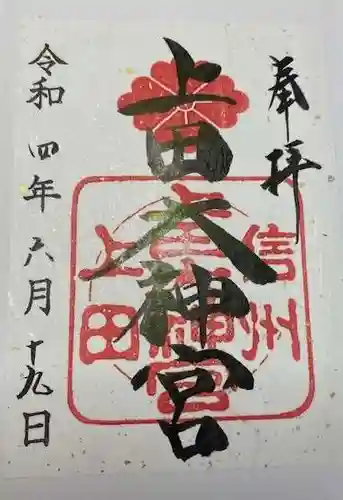 奉拝
上田大神宮
令和四年六月十九日
信州
上田